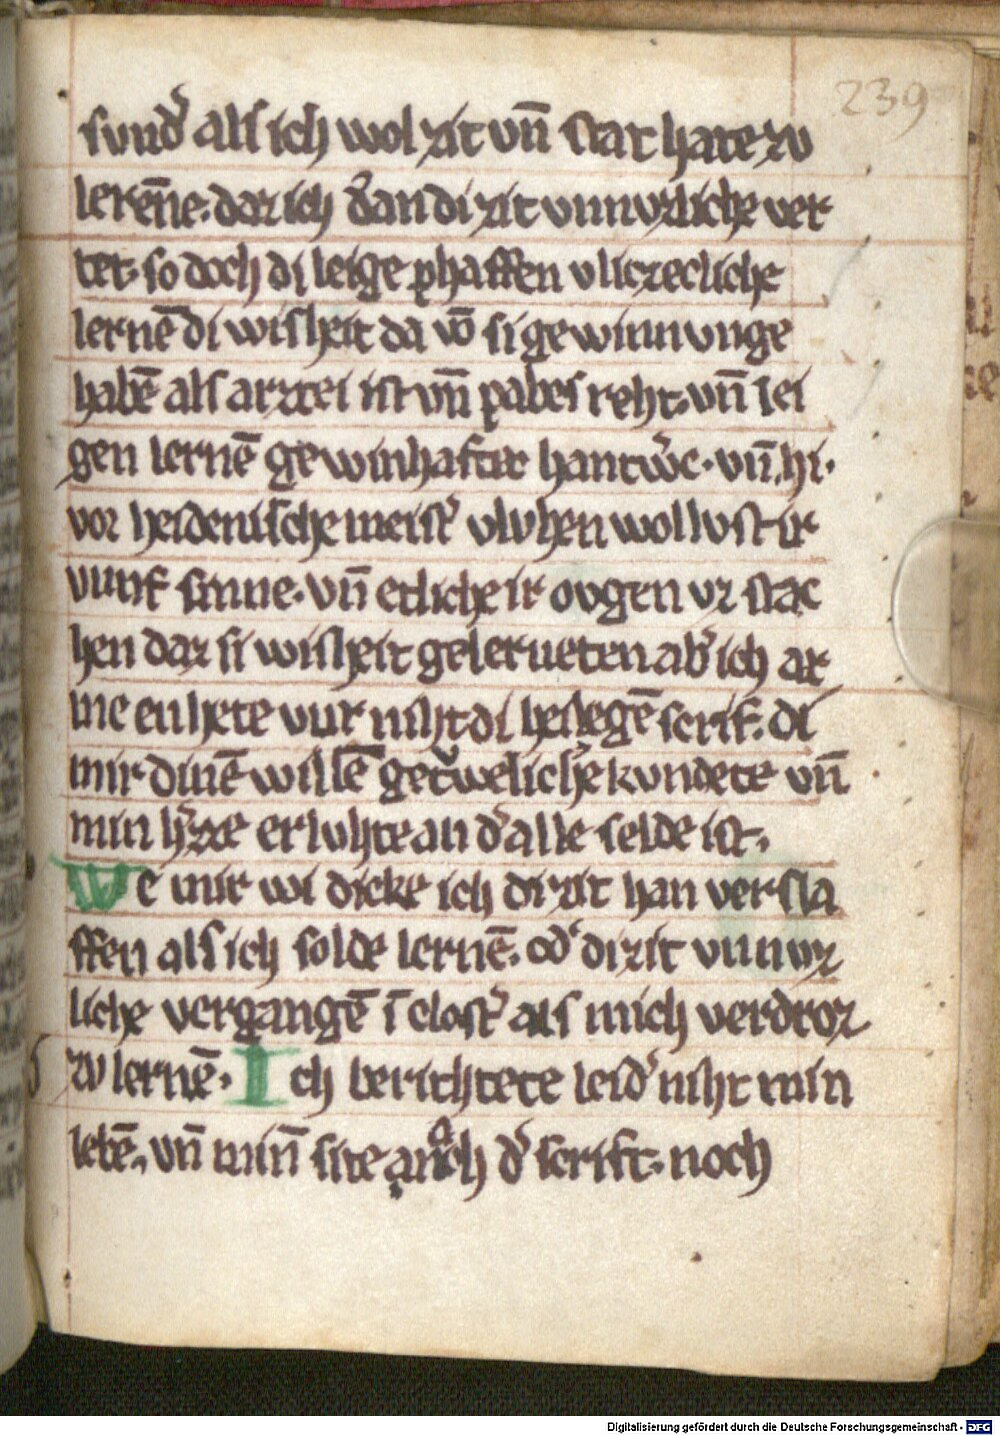 239
sund᷎ als ich wol zit vn̄ stat hate zv
lerēne. daz ich d᷎an di zit vnnvzliche ver
tet. so doch di leige phaffen vlizecliche
lernē di wisheit da vō si gewinnvnge
habē als arztei ist vn̄ pabes reht. vn̄ lei
gen lernē gewinhafter hantw᷎c. vn̄ hi.
vor heidenische meist᷎ vluhen wollvst ir
vunf sinne. vn̄ etliche ir ovgen vz stac
hen daz si wisheit gelerneten ab᷎ ich ar
me en hete vur niht di heilegē scrif. di
mir dinē willē get᷎weliche kvndete vn̄
min h᷎ze erluhte an d᷎ alle selde ist.
We mir wi dicke ich di zit han versla
ffen als ich solde lernē. od᷎ di zit vnnvz
liche vergangē ī clost᷎ als mich verdroz
zv lernē. Ich berichtete leid᷎ niht min
lebē. vn̄ min̄ site nach d᷎ scrift. noch
Digitalisierung gefördert durch die Deutsche Forschungsgemeinschaft - DFG